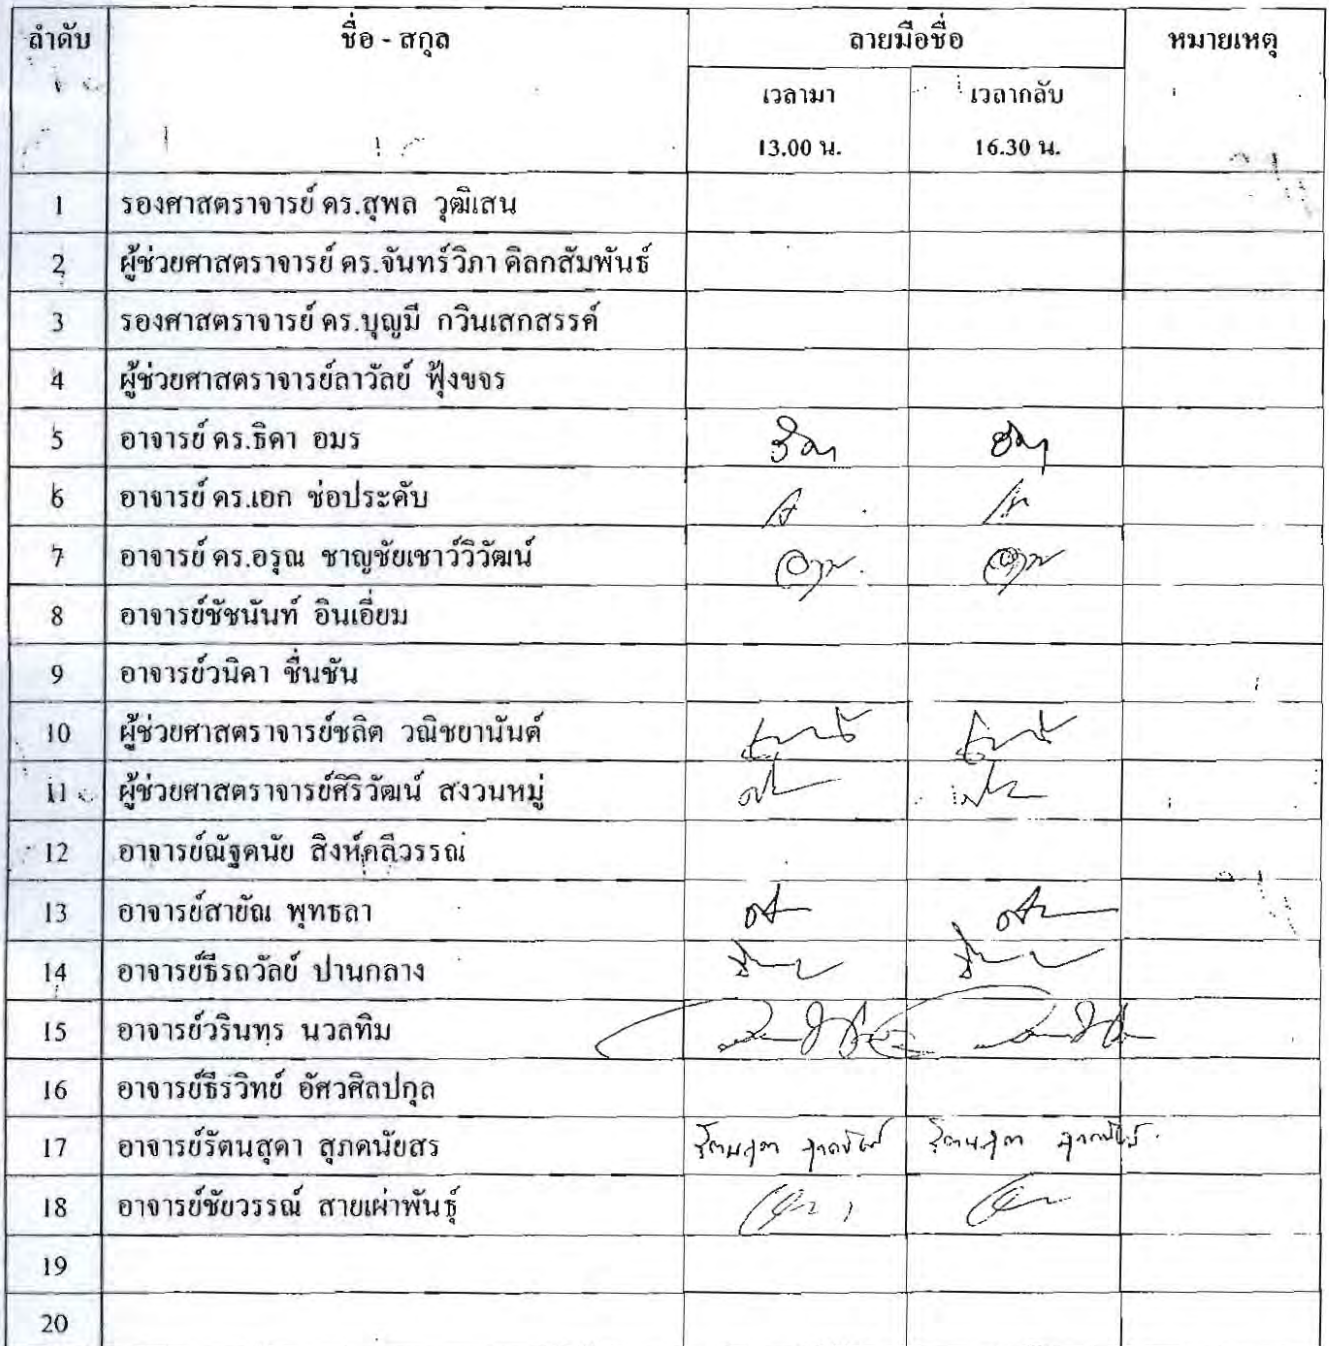 ลำดับ ชื่อ - สกุล ลายมือชื่อ หมายเหตุ
เวลามา เวลากลับ
13.00 น. 16.30 น.
1 รองศาสตราจารย์ ดร.สุพล วุฒิเสน
2 ผู้ช่วยศาสตราจารย์ ดร.จันทร์วิภา ดิลกสัมพันธ์
3 รองศาสตราจารย์ ดร.บุญมี กวินเสกสรรค์
4 ผู้ช่วยศาสตราจารย์ลาวัลย์ ฟุ้งขจร
5 อาจารย์ ดร.ธิดา อมร
6 อาจารย์ ดร.เอก ช่อประดับ
7 อาจารย์ ดร.อรุณ ชาญชัยเชาว์วิวัฒน์
8 อาจารย์ชัชนันท์ อินเอี่ยม
9 อาจารย์วนิดา ชื่นชัน
10 ผู้ช่วยศาสตราจารย์ชลิต วณิชยานันต์
11 ผู้ช่วยศาสตราจารย์ศิริวัฒน์ สงวนหมู่
12 อาจารย์ณัฐดนัย สิงห์คลีวรรณ
13 อาจารย์สายัณ พุทธลา
14 อาจารย์ธีรถวัลย์ ปานกลาง
15 อาจารย์วรินทร นวลทิม
16 อาจารย์ธีรวิทย์ อัศวศิลปกุล
17 อาจารย์รัตนสุดา สุภดนัยสร
18 อาจารย์ชัยวรรณ์ สายเผ่าพันธุ์
19
20